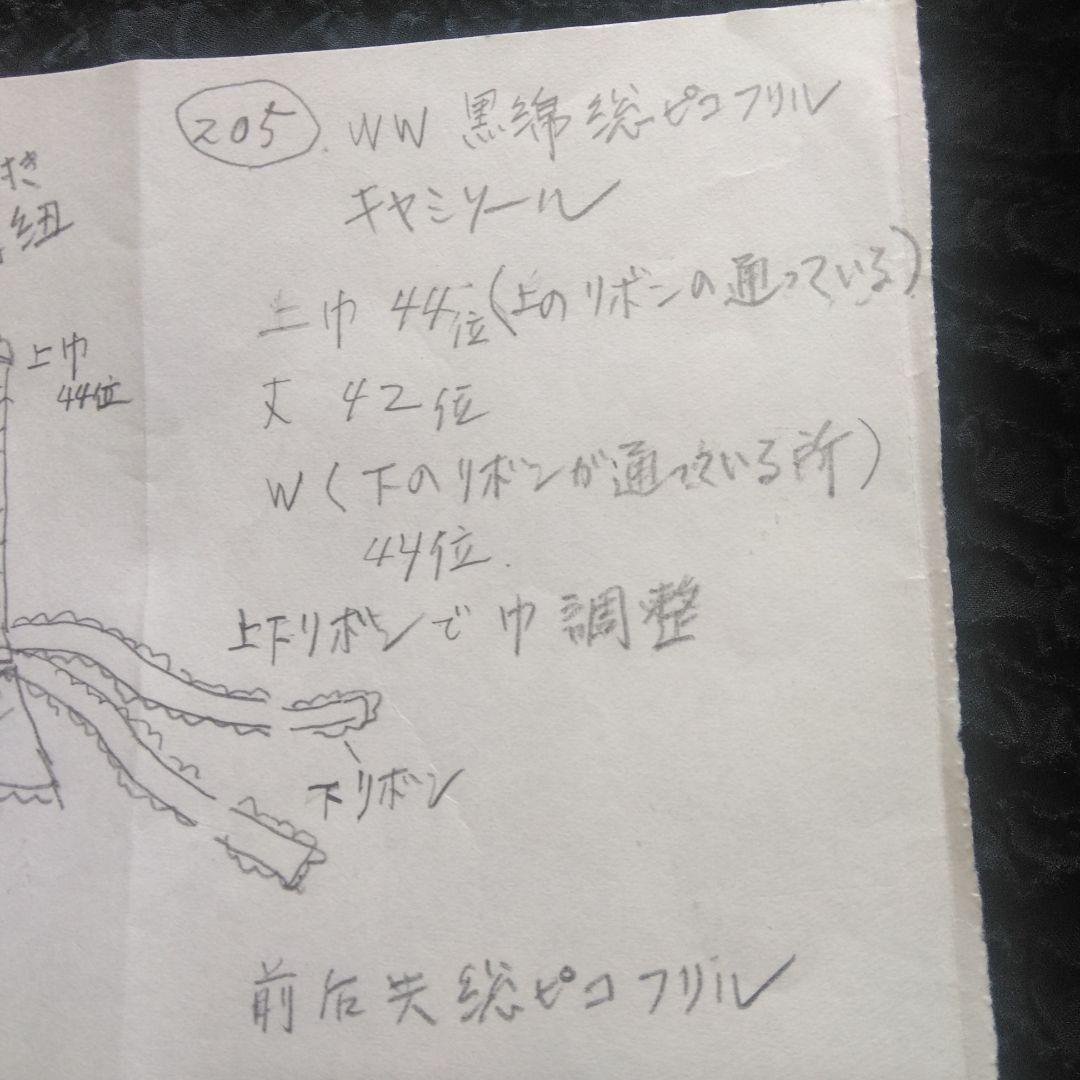 205. WW 黒綿総ピコフリル
キャミソール
上巾 44位(上のリボンの通っている)
丈 42位
W(下のリボンが通っている所)
44位.
上下リボンで巾調整
下リボン
前后共総ピコフリル
付き
紐
上巾
44位